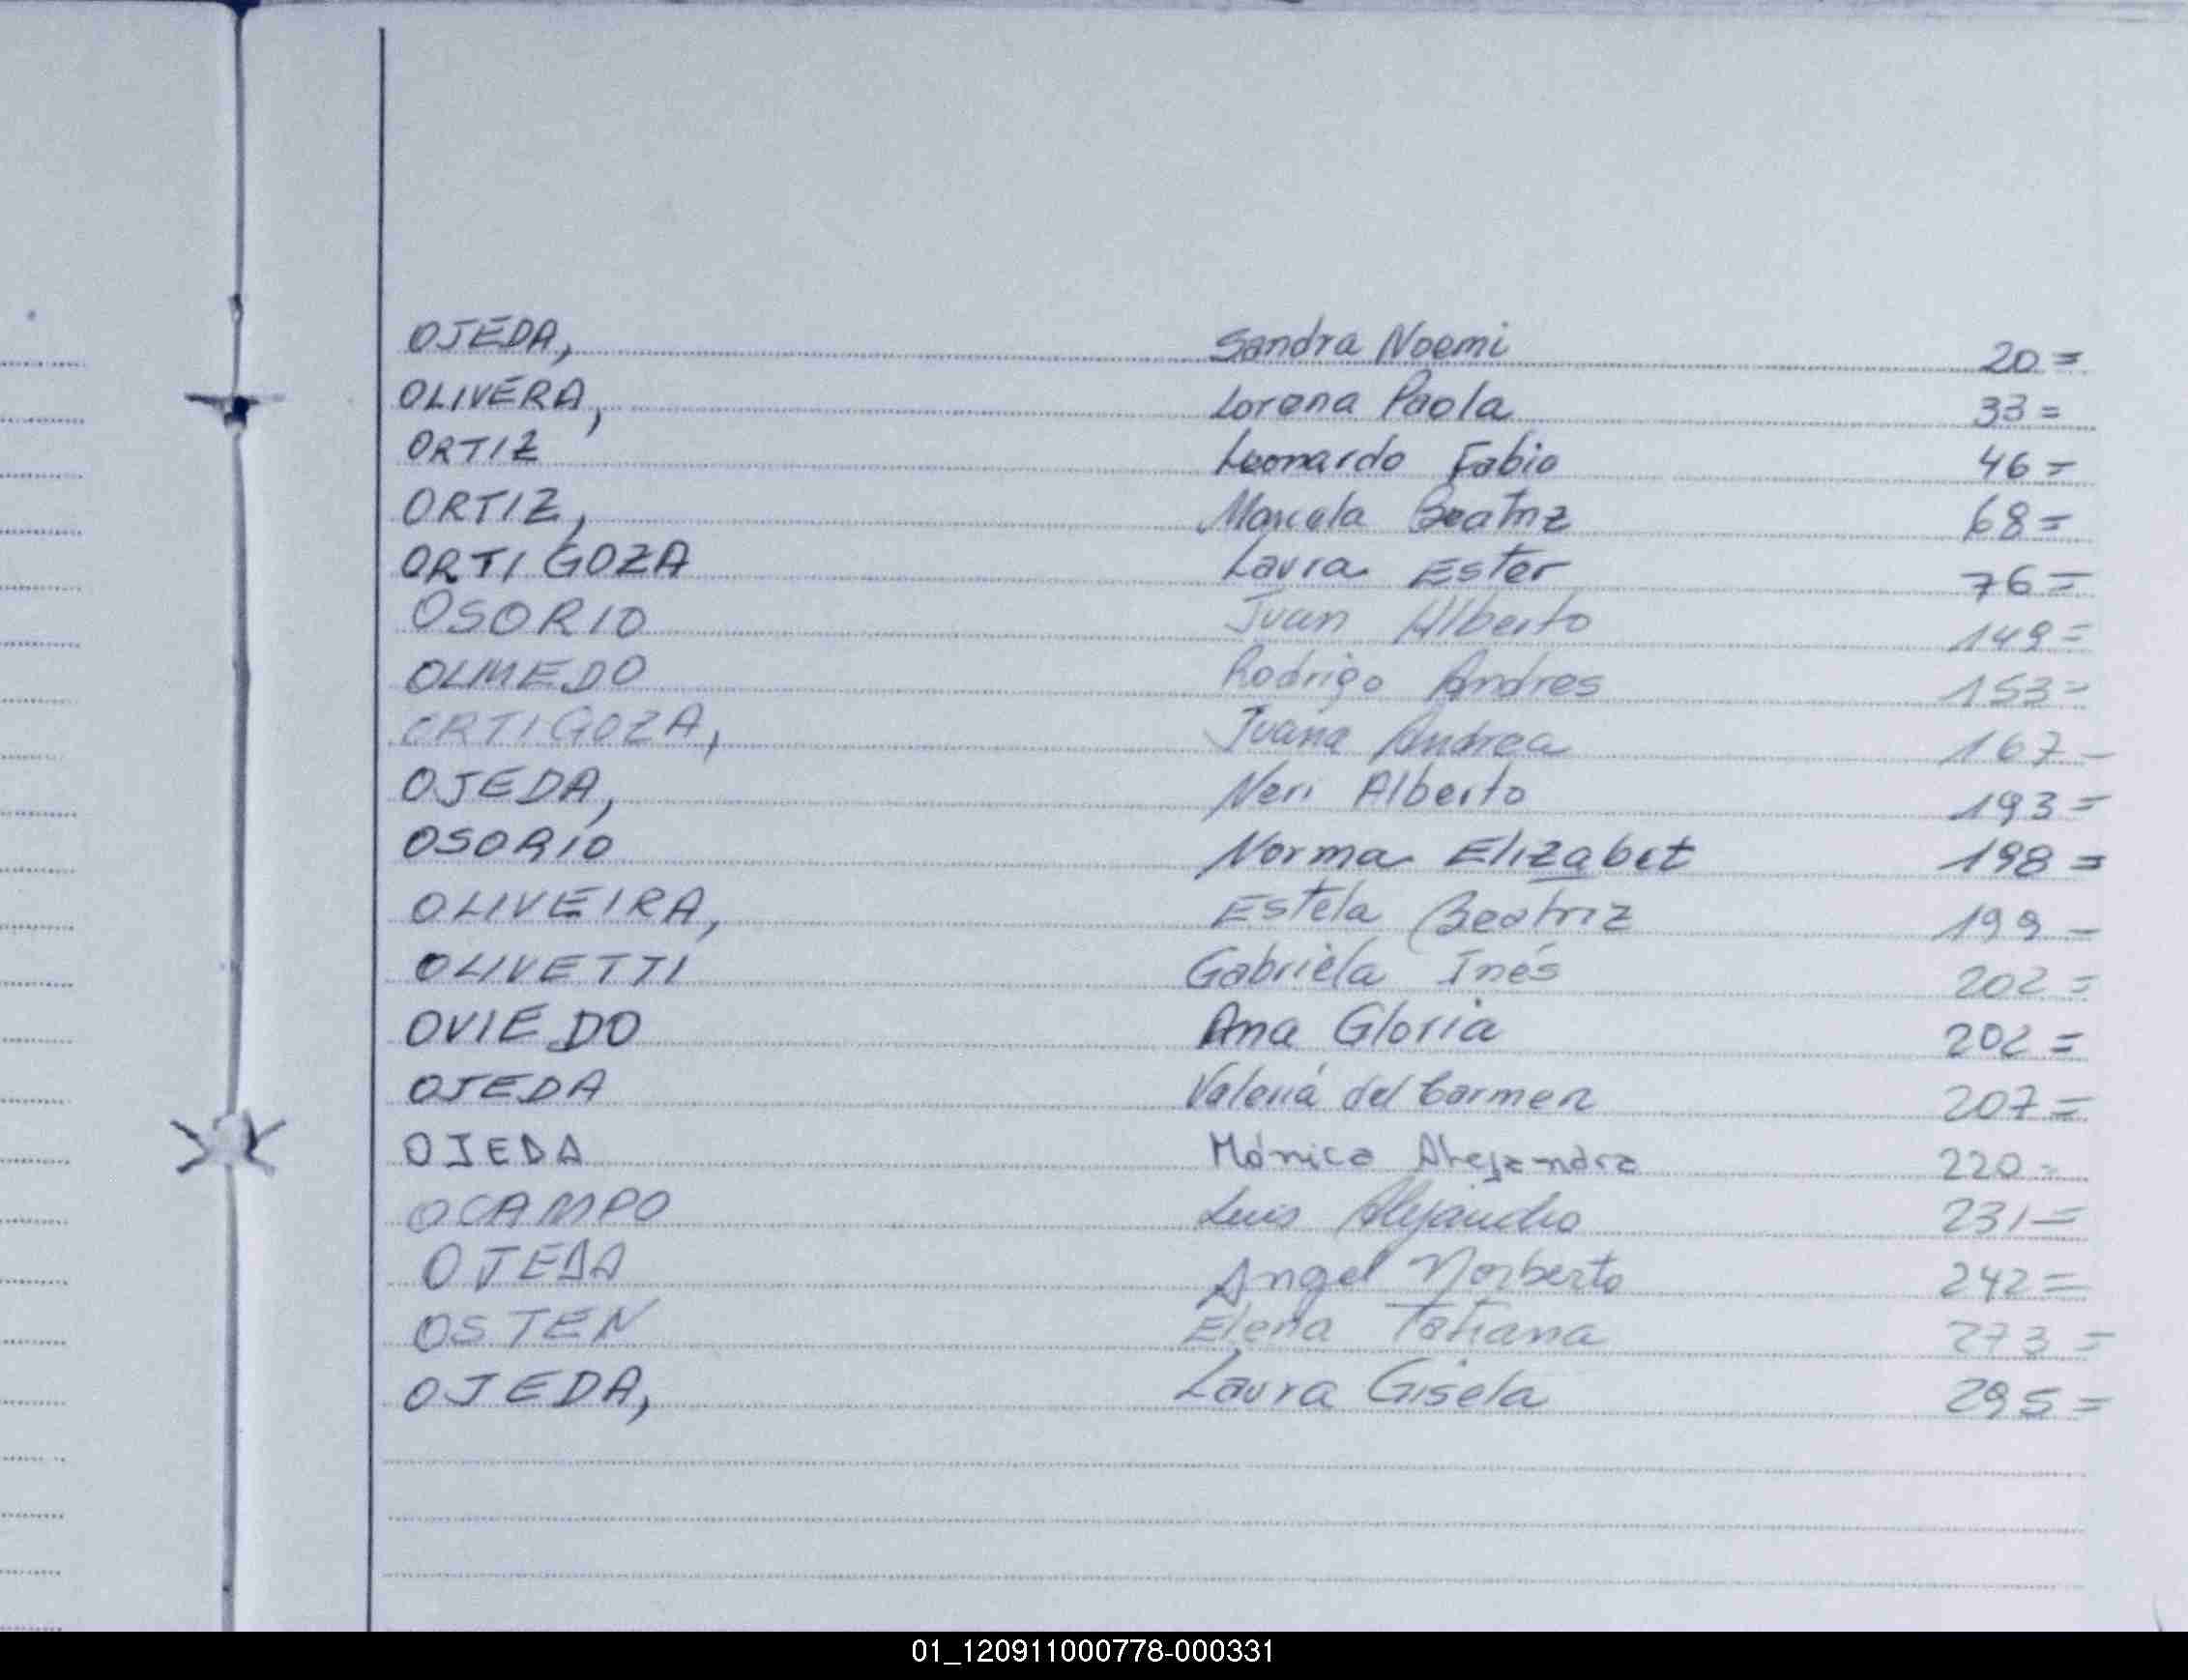 OJEDA, Sandra Noemi 20=
OLIVERA, Lorena Paola 33=
ORTIZ Leonardo Fabio 46=
ORTIZ, Marcela Beatriz 68=
ORTIGOZA Laura Ester 76=
OSORIO Juan Alberto 149=
OLMEDO Rodrigo Andres 153=
ORTIGOZA, Juana Andrea 167-
OJEDA, Neri Alberto 193=
OSORIO Norma Elizabet 198=
OLIVEIRA, Estela Beatriz 199-
OLIVETTI Gabriela Inés 202=
OVIEDO Ana Gloria 202=
OJEDA Valeria del Carmen 207=
OJEDA Mónica Alejandra 220=
OCAMPO Luis Alejandro 231=
OJEDA Angel Norberto 242=
OSTEN Elena Tatiana 273=
OJEDA, Laura Gisela 295=
01_120911000778-000331